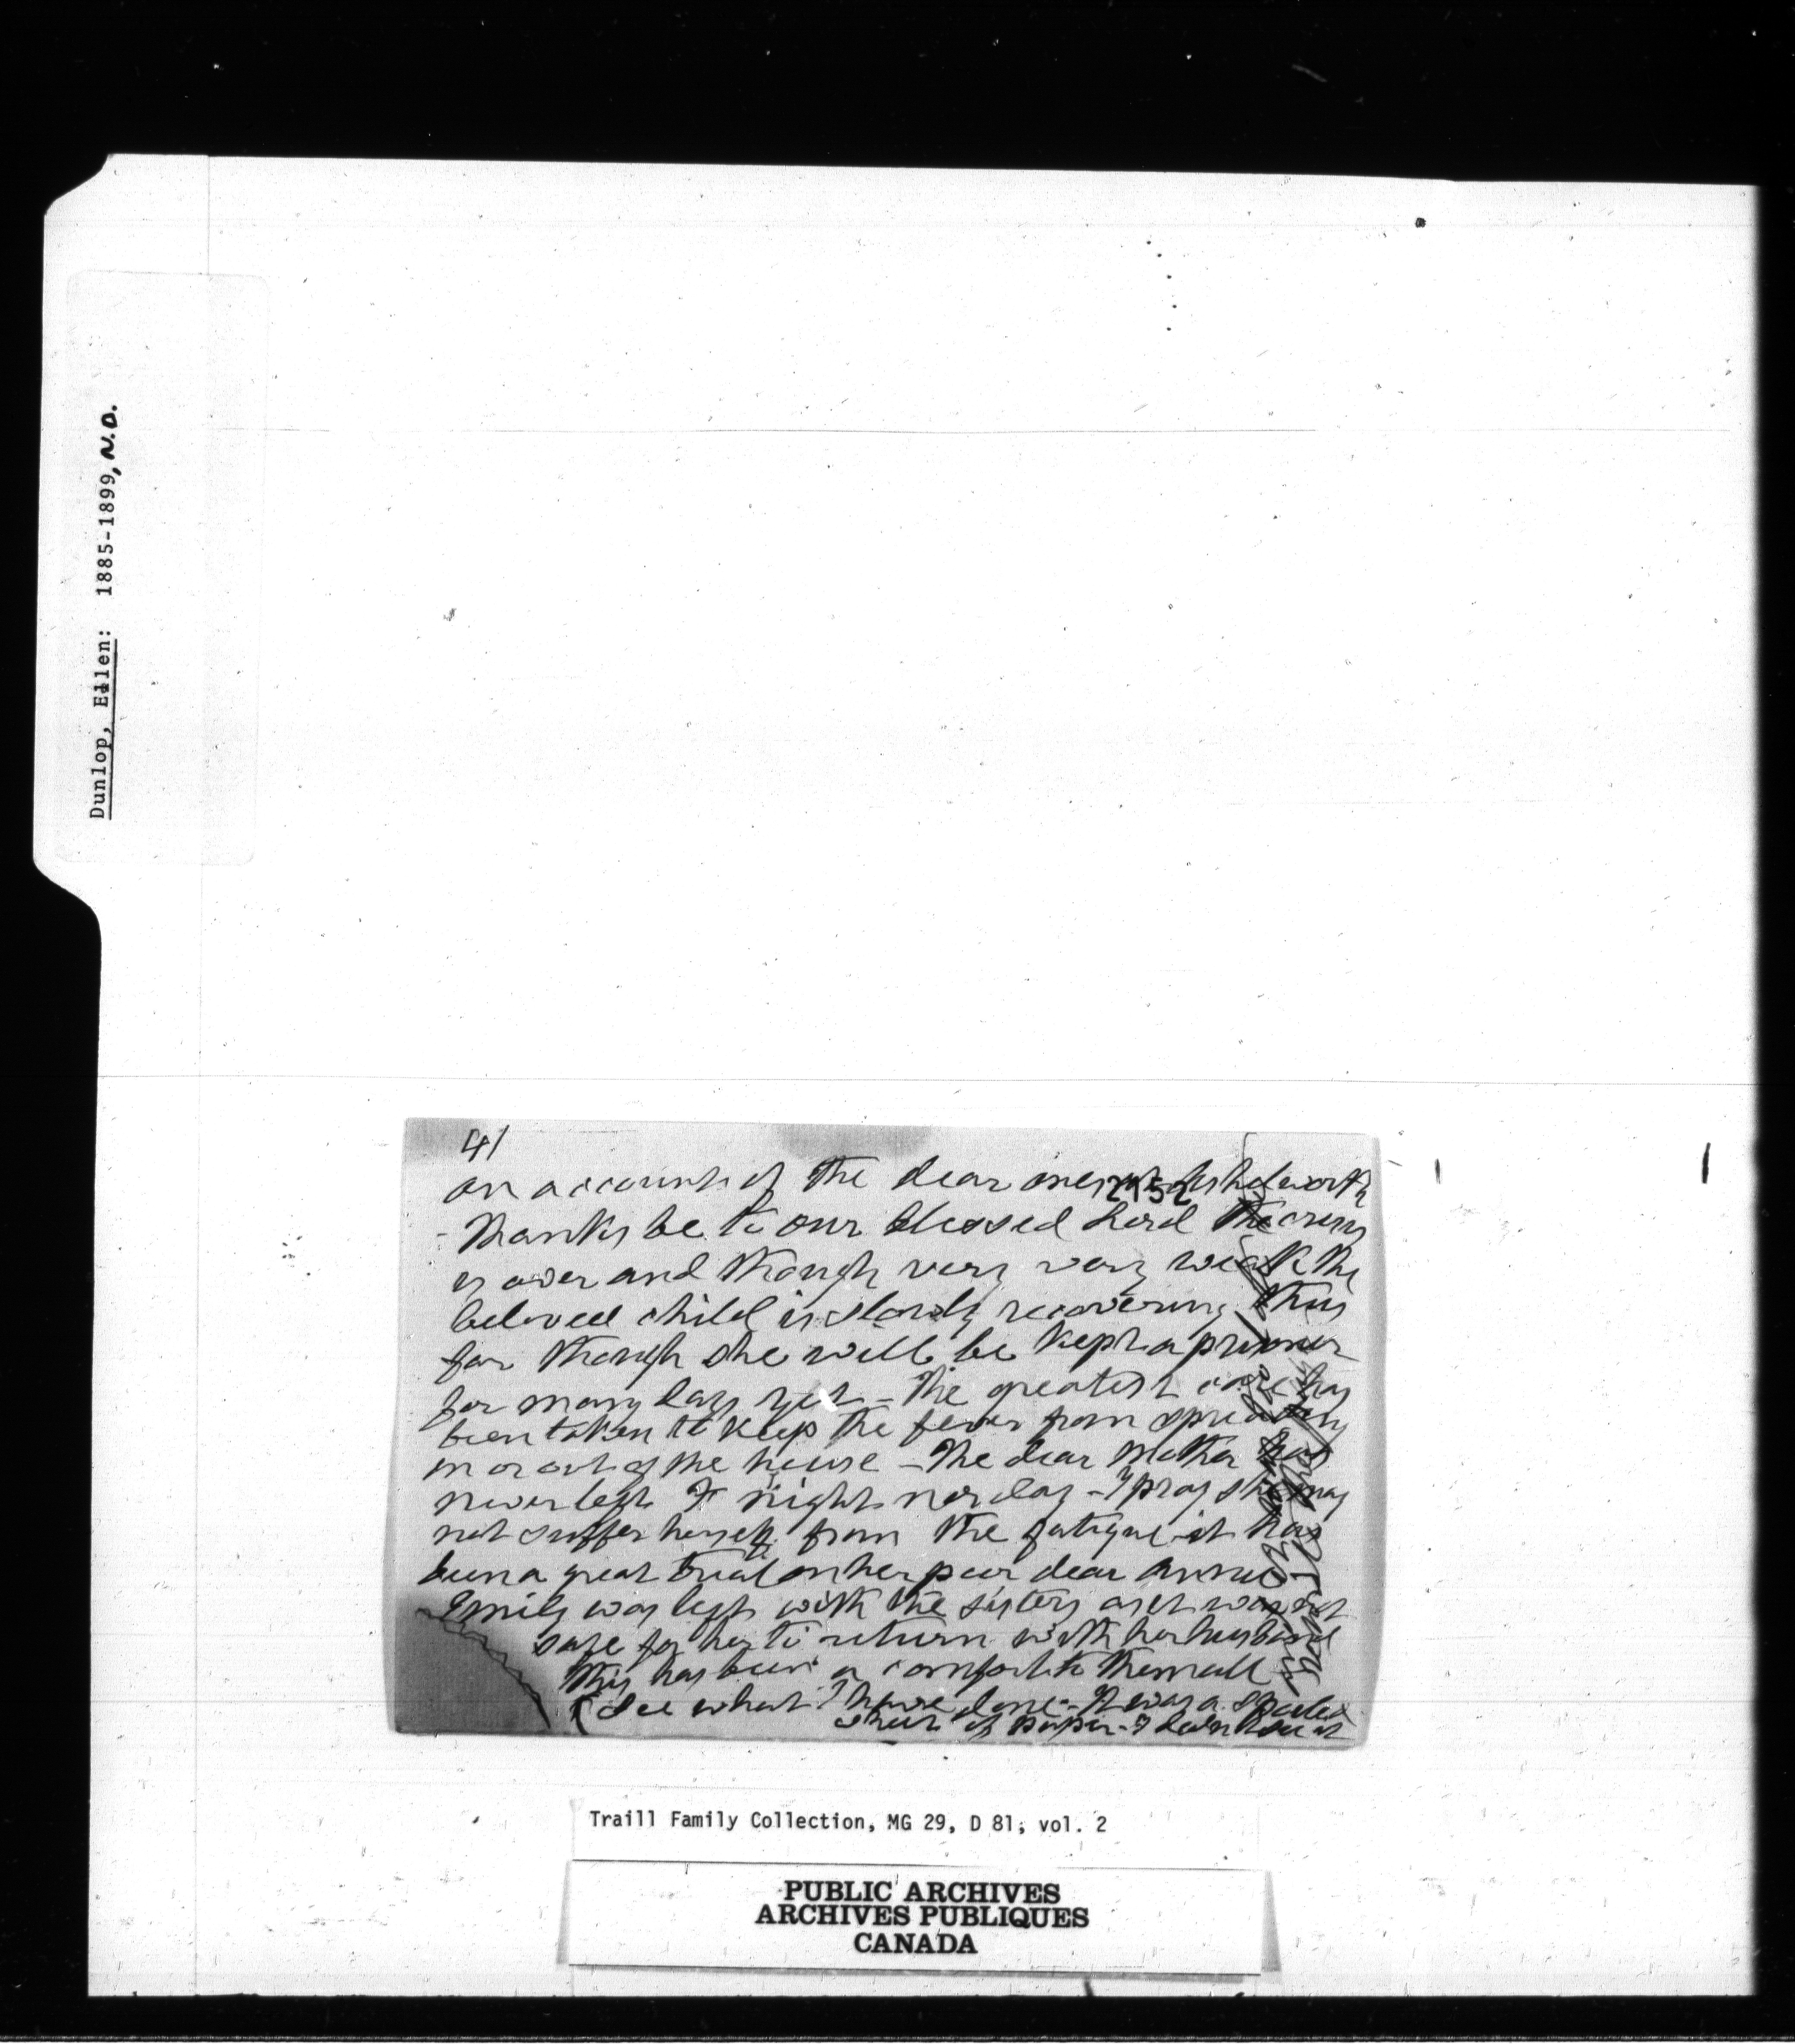 Dunlop, Ellen: 1885-1899, N.D.
4/
on account of the dear ones at
2152
- Thanks be to our blessed Lord the crisis
is over and though very very weak the
beloved child is slowly recovering thus
far though she will be kept a prisoner
for many days yet - The greatest care has
been taken to keep the fever from spreading
in or out of the house - The dear Mother has
never left it night nor day - I pray she may
not suffer herself from the fatigue it has
been a great trial on her poor dear Annie
Emily was left with the sisters as it was not
safe for her to return with her husband
This has been a comfort to them all
(See what I have done - It was a spoiled
sheet of paper - I didn't see it
Traill Family Collection, MG 29, D 81, vol. 2
PUBLIC ARCHIVES
ARCHIVES PUBLIQUES
CANADA